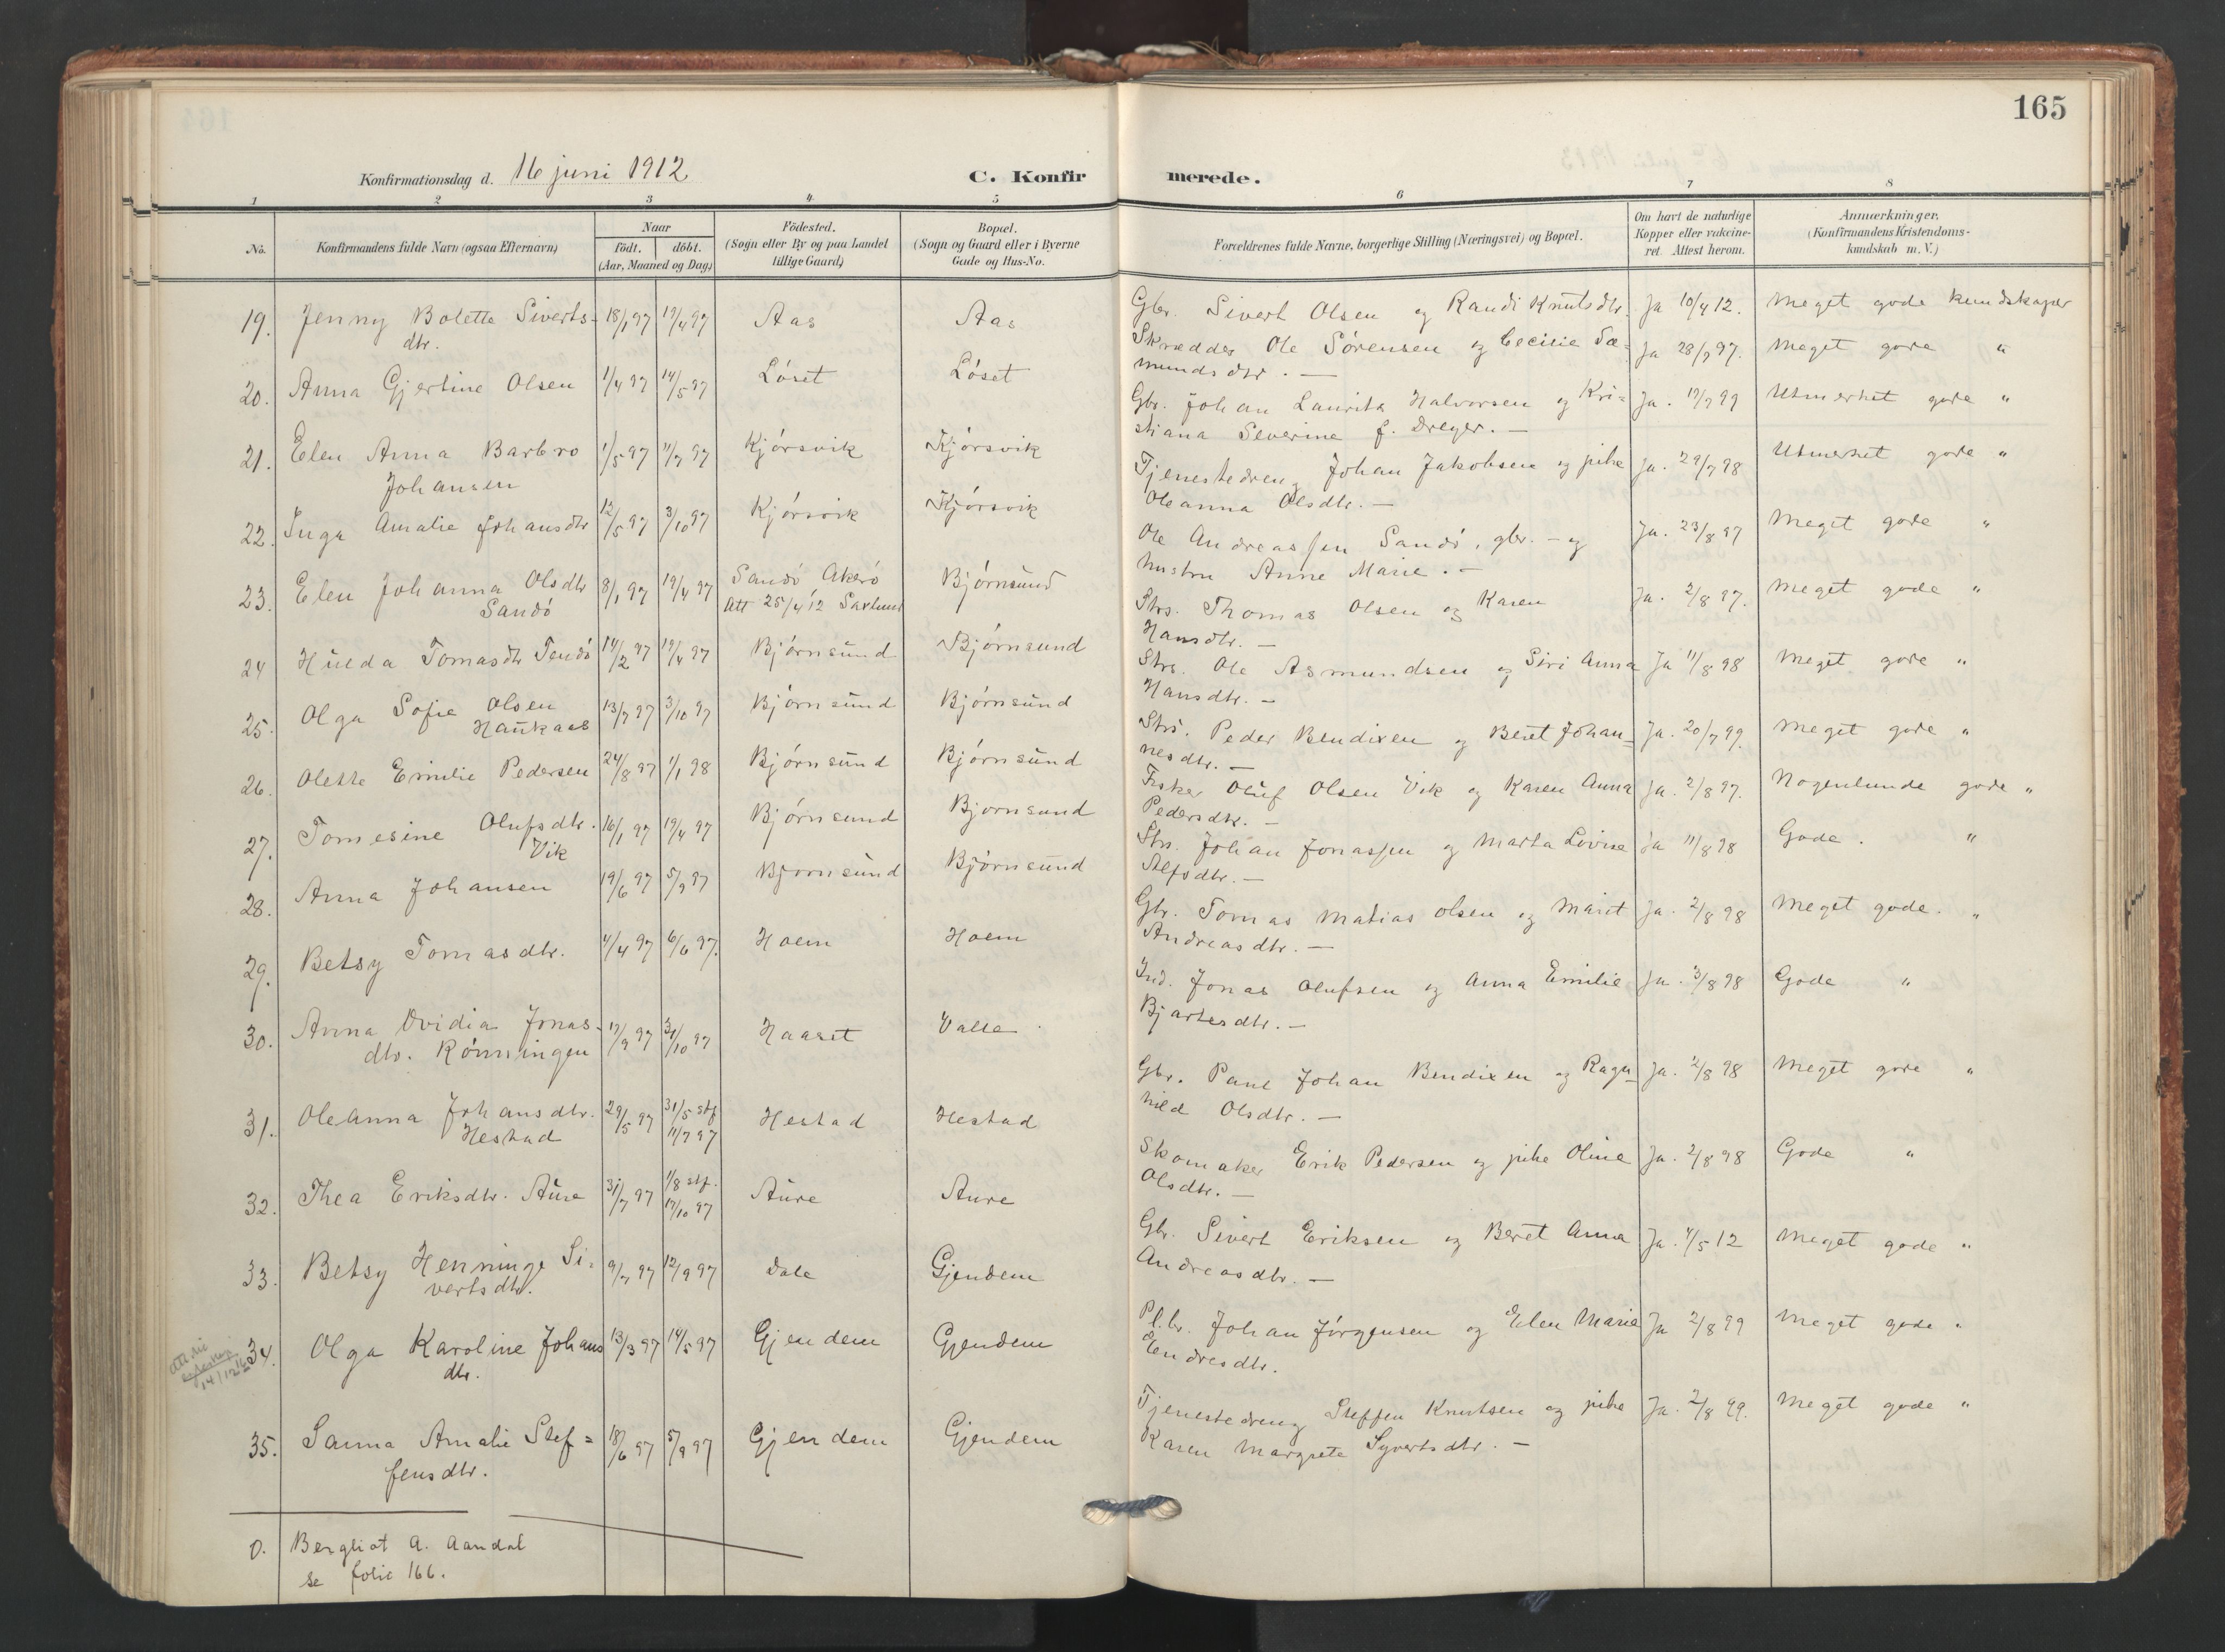 165
Konfirmationsdag d. 16 juni 1912
C. Konfir merede.
1 2 3 4 5 6 7 8
No.
Konfirmandens fulde Navn (ogsaa Efternavn)
Naar
födt. döbt.
(Aar, Maaned og Dag)
Födested.
(Sogn eller By og paa Landet
tillige Gaard)
Bopæl.
(Sogn og Gaard eller i Byerne
Gade og Hus-No.
Forældrenes fulde Navne, borgerlige Stilling (Næringsvei) og Bopæl.
Om havt de naturlige
Kopper eller vakcine-
ret. Attest herom.
Anmærkninger.
(Konfirmandens Kristendoms-
kundskab m. V.)
19. Jenny Bolette Siverts- 18/1 97 19/4 97 Aas Aas Gbr. Sivert Olsen og Randi Knutsdtr. Ja 10/4 12. Meget gode kundskaper
dtr.
20. Anna Gjertine Olsen 1/4 97 14/5 97 Löset Löset Skrædder Ole Sörensen og Cecilie Sæ- Ja 28/7 97. Meget gode "
mundsdtr. —
21. Elen Anna Barbro 1/5 97 11/7 97 Kjörsvik Kjörsvik Gbr. Johan Laurits Halvorsen og Kri= Ja. 17/7 99 Utmerket gode "
Johansen stiana Severine f. Dreyer. —
22. Inga Amalie Johansdtr 12/5 97 3/10 97 Kjörsvik Kjörsvik Tjenestedreng Johan Jakobsen og pike Ja. 29/7 98 Utmerket gode "
Oleanna Olsdtr. —
23. Elen Johanna Olsdtr 8/1 97 19/4 97 Sandö Akerö Björnsund Ole Andreassen Sandö, gbr. — og Ja. 23/8 97 Meget gode "
Sandö Att 25/4 12 Saxlund hustru Anne Marie. —
24 Hulda Tomasdtr 14/2 97 19/4 97 Björnsund Björnsund Strs. Thomas Olsen og Karen Ja. 2/8 97. Meget gode "
Hansdtr. —
25. Olga Sofie Olsen 13/7 97 3/10 97 Björnsund Björnsund Strs. Ole Asmundsen og Siri Anna Ja 11/8 98 Meget gode "
Haukaas Hansdtr. —
26. Olette Emilie Pedersen 24/8 97 1/1 98 Björnsund Björnsund Strs. Peder Bendixen og Beret Johan- Ja. 20/7 99. Meget gode "
nesdtr. —
27. Tomesine Olufsdtr. 16/1 97 19/4 97 Björnsund Björnsund Fisker Oluf Olsen Vik og Karen Anna Ja. 2/8 97. Nogenlunde gode "
Vik Pedersdtr. —
28. Anna Johansen 19/6 97 5/9 97 Björnsund Björnsund Strs. Johan Jonassen og Marta Lovise Ja 11/8 98 Gode. "
29. Betsy Tomasdtr. 4/4 97 6/6 97. Hoem Hoem Gbr. Tomas Matias Olsen og Marit Ja. 2/8 98 Meget gode. "
Andreasdtr. —
30. Anna Ovidia Jonas- 17/9 97 31/10 97 Haaset Valle Ind. Jonas Olufsen og Anna Emilie Ja. 3/8 98 Gode "
dtr. Rönningen Bjartesdtr. —
31. Oleanna Johansdtr. 29/5 97 31/5 stf. Hestad Hestad Gbr. Paul Johan Bendixen og Ragn- Ja. 2/8 98 Meget gode "
Hestad 11/7 97 hild Olsdtr. —
32. Thea Eriksdtr. Aure 31/7 97 1/8 stf. Aure Aure Skomaker Erik Pedersen og pike Oline Ja. 2/8 98 Gode "
17/10 97 Olsdtr. —
33. Betsy Henninge Si- 9/7 97 12/9 97 Dale Gjendem Gbr. Sivert Eriksen og Beret Anna Ja. 4/5 12 Meget gode "
vertsdtr. Andreasdtr. —
34. Olga Karoline Johans 13/3 97 14/5 97 Gjendem Gjendem Pl.br. Johan Jörgensen og Elen Marie Ja 2/8 99 Meget gode "
dtr. Endresdtr.
35. Sanna Amalie Stef= 18/6 97 5/9 97 Gjendem Gjendem Tjenestedreng Steffen Knutsen og pike Ja. 2/8 99. Meget gode "
fensdtr. Karen Margrete Syvertsdtr. —
0. Bergliot A. Aandal
se folie 166.